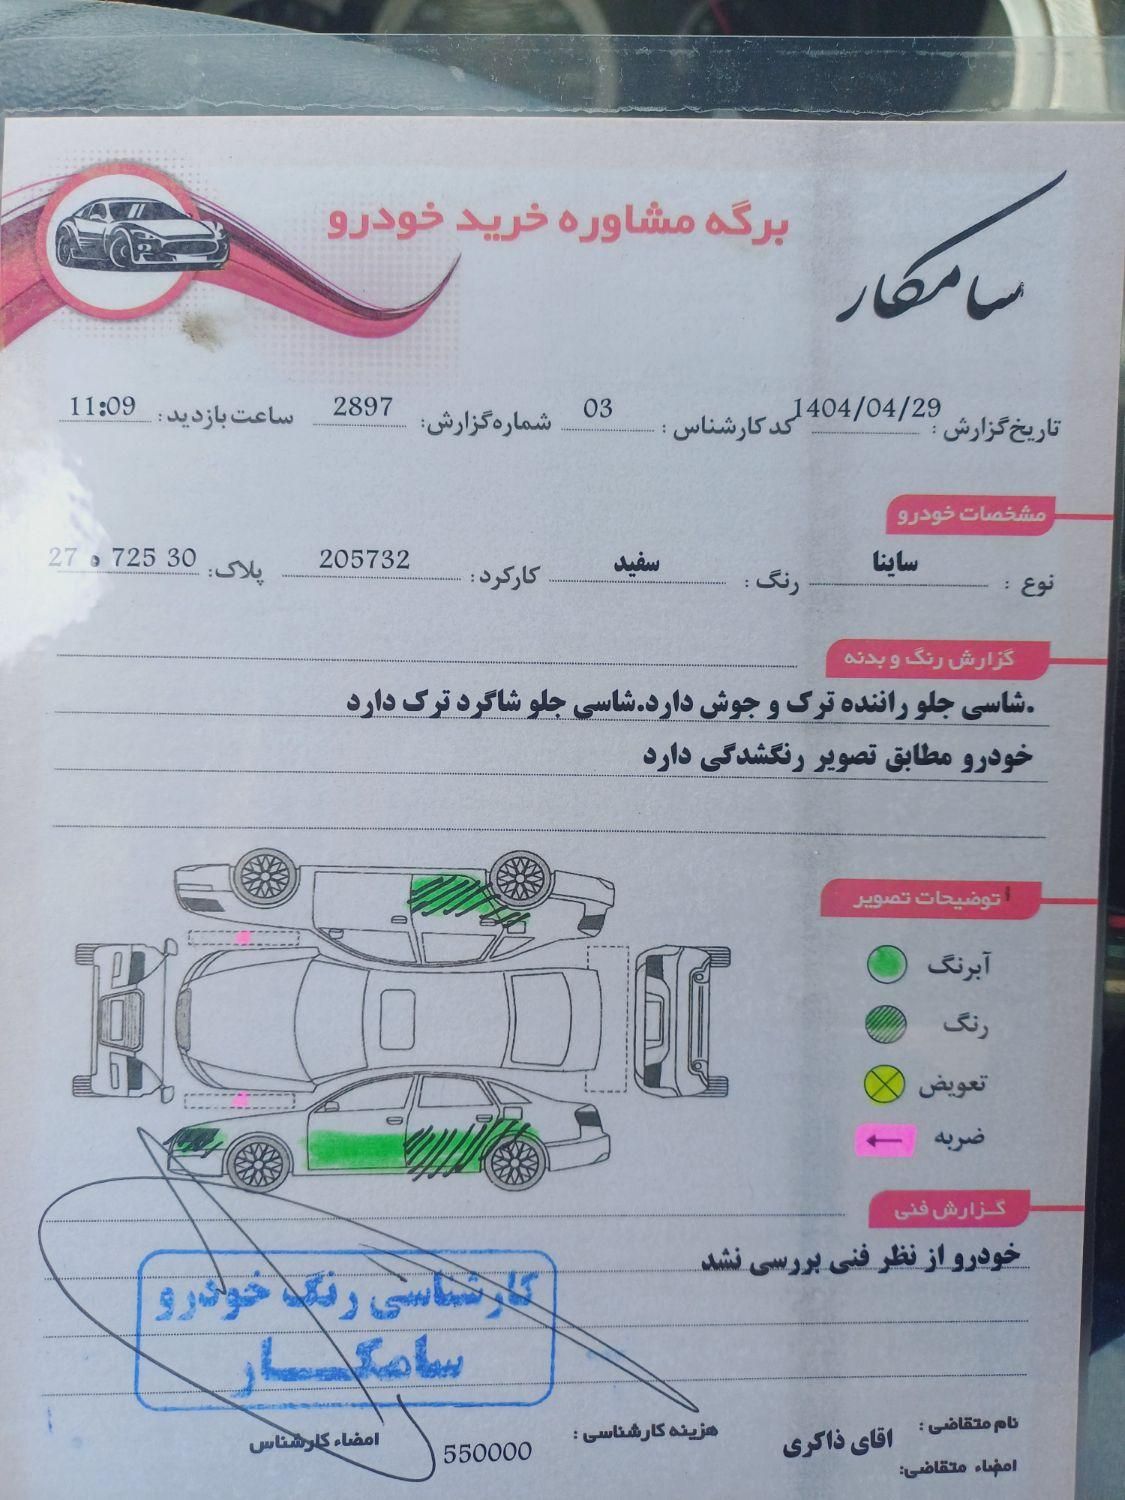 سامکار
برگه مشاوره خرید خودرو
تاریخ گزارش : 1404/04/29 کد کارشناس : 03 شماره گزارش: 2897 ساعت بازدید: 11:09
مشخصات خودرو
نوع : ساینا رنگ : سفید کارکرد: 205732 پلاک: 27 ه 725 30
گزارش رنگ و بدنه
.شاسی جلو راننده ترک و جوش دارد.شاسی جلو شاگرد ترک دارد
خودرو مطابق تصویر رنگشدگی دارد
توضیحات تصویر
آبرنگ
رنگ
تعویض
ضربه
گزارش فنی
خودرو از نظر فنی بررسی نشد
کارشناسی رنگ خودرو
سامکار
نام متقاضی : اقای ذاکری هزینه کارشناسی : 550000 امضاء کارشناس
امضاء متقاضی: